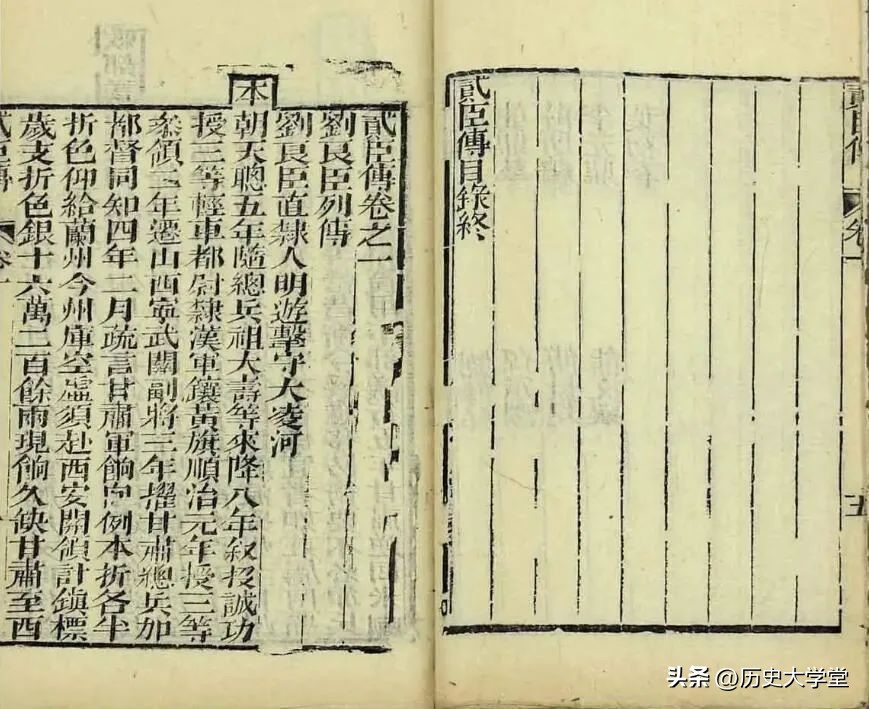 貳臣傳卷一
五
貳臣傳目錄終
貳臣傳卷之一
劉良臣列傳
劉良臣直隸人明遊擊守大凌河
本
朝天聰五年隨總兵祖大壽等來降八年叙投誠功
授三等輕車都尉隸漢軍鑲黃旗順治元年授三等
叅領二年遷山西寧武關副將三年擢甘肅總兵加
都督同知四年二月疏言甘肅軍餉向例本折各半
折色仰給蘭州今州庫空虛須赴西安開領計鎮標
歲支折色銀十六萬二百餘兩現餉久缺甘肅至西
貳臣傳 卷一
头条 @历史大学堂